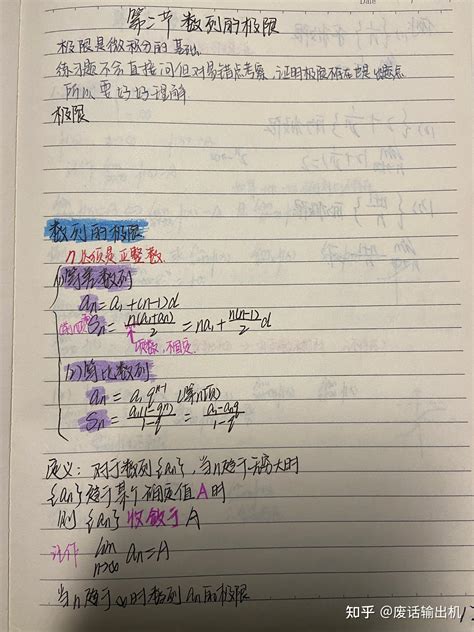 第二节 数列的极限
极限是微积分的基础.
练习题不会直接问但对易错点考察,证明极限存在也是难点
所以要好好理解
极限
数列的极限
n必须是正整数.
(1)等差数列
an = a1 + (n-1)d
(前n项和) Sn = n(a1+an)/2 = na1 + n(n-1)/2 d
项数,相连.
(2)等比数列
an = a1 q^(n-1) (第n项)
Sn = a1(1-q^n)/(1-q) = (a1-anq)/(1-q)
定义: 对于数列{an}, 当n趋于无穷大时
{an}趋于某个确定值A时
则{an}收敛于A
记作 lim n→∞ an = A
当n趋于∞时数列an的极限
知乎 @废话输出机